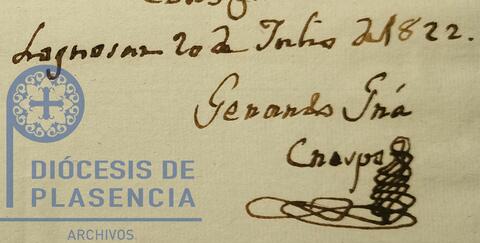 Logrosan 20 de Julio de 1822.
Gerardo Gria
Crespo
DIÓCESIS DE
PLASENCIA
ARCHIVOS